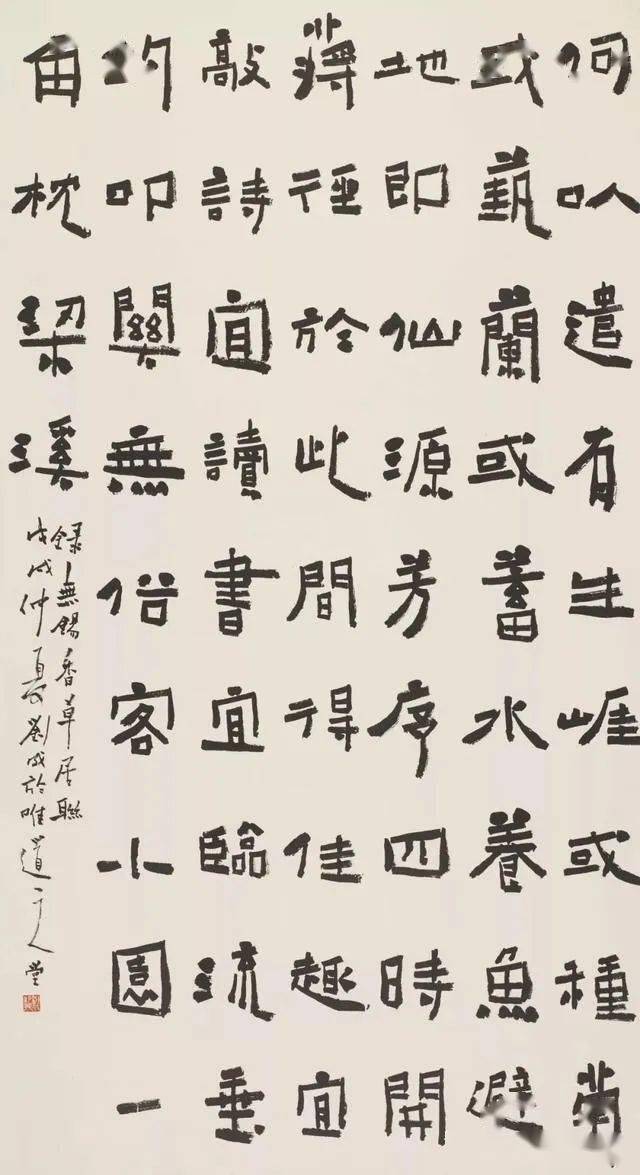 何以遣有生涯或種菊
或藝蘭或蓄水養魚避
地即仙源芳序四時開
蔣徑於此間得佳趣宜
敲詩宜讀書宜臨流垂
釣叩關無俗客小園一
角枕梁溪
錄無錫香草居聯
戊戌仲夏劉成於唯道人堂